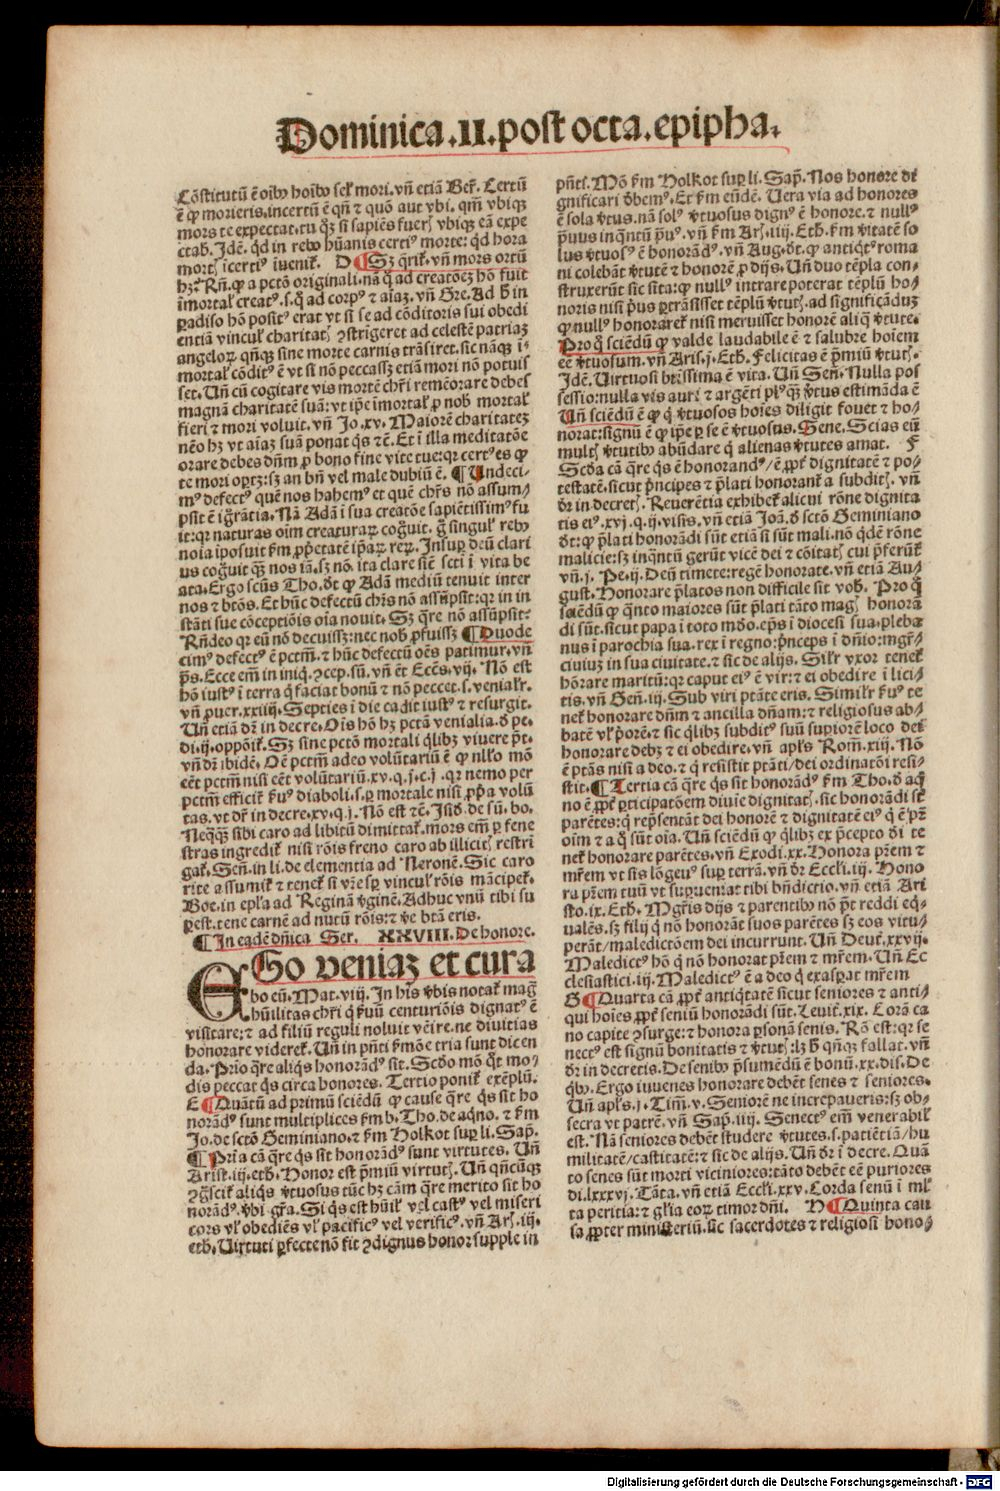 Dominica.II.post octa.epipha.
Cōstitutū ē oībꝰ hoībꝰ sel̄ mori. vn̄ etiā Ber̄. Certū
ē ꝙ morieris, incertū ē qn̄ ⁊ quō aut vbi. qm̄ vbiqꝫ
mors te expectat. tu qꝫ si sapiēs fuerꝭ vbiqꝫ eā expe
ctab. Idē. qd in rebꝰ hūanis certiꝰ morte: qd hora
mortꝭ īcertiꝰ īuenit̄. D ¶ Sꝫ q̄rit̄. vn̄ mors ortū
hꝫ. Rn̄. ꝙ a pctō originali. nā qn̄ ad creatōeꝫ hō fuit
īmortal̄ creatꝰ. s. qͣ ad corpꝰ ⁊ aīaꝫ. vn̄ Gre. Ad h̄ in
ꝑadiso hō positꝰ erat vt si se ad cōditoris sui obedi
entiā vincul̄ charitatꝭ ꝯstrigeret ad celestē patriaꝫ
angeloꝝ qn̄qꝫ sine morte carnis trāsiret. sic nāqꝫ i-
mortal̄ cōditꝰ ē vt si nō peccasꝫ etiā mori nō potuis
set. Un̄ cū cogitare vis mortē chr̄i remēorare debes
magnā charitatē suā: vt ip̄e īmortal̄ ꝓ nob mortal̄
fieri ⁊ mori voluit. vn̄ Jo. xv. Maiorē charitateꝫ
nēo hꝫ vt aīaꝫ suā ponat qs ⁊c̄. Et i illa meditatōe
orare debes dn̄m ꝓ bono fine vite tue: qr certꝰ es ꝙ
te mori oportꝫ: sꝫ an bn̄ vel male dubiū ē. ¶ Undeci-
mꝰ defectꝰ quē nos habemꝰ et quē chr̄s nō assum-
psit ē igrātia. Nā Adā i sua creatōe sapiētissimꝰ fu
it: qr naturas oīm creaturaꝝ cogͦuit. ḡ singul̄ rebꝰ
noīa īposuit ẜm ꝓp̄etatē ip̄aꝝ reꝝ. Insuꝑ deū clari
us cogͦuit qꝫ nos iā. sꝫ nō. ita clare sic̄ scti i vita be
ata. Ergo scūs Tho. dt ꝙ Adā mediū tenuit inter
nos ⁊ btōs. Et hūc defectū chr̄s nō assūpsit: qr in in
stāti sue cōceptiōis oīa novit. Sꝫ q̄re nō assūpsit:
Rn̄deo qr eū nō decuisꝫ: nec nob ꝓfuisꝫ ¶ Duode
cimꝰ defectꝰ ē pctm̄. ⁊ hūc defectū oēs patimur. vn̄
p̄s. Ecce em̄ in iniqͣ. ꝯcep. sū. vn̄ ēt Ecc̄s. vij. Nō est
hō iustꝰ i terra q faciat bonū ⁊ nō peccet. s. venialr̄.
vn̄ prouer. xxiiij. Septies i die cadit iustꝰ ⁊ resurgit.
Un̄ etiā dr̄ in decre. Ois hō hꝫ pctā venialia. d̄ pe-
di. ij. oppōit̄. Sꝫ sine pctō mortali qlibꝫ viuere p̄t.
vn̄ dr̄ ibidē. Oē pctm̄ adeo volūtariū ē ꝙ nllo mō
eēt pctm̄ nisi eēt volūtariū. xv. q. j. c. j. qr nemo per
pctm̄ efficit̄ ẜuꝰ diaboli. s. ꝑ mortale nisi ꝓp̄a volū
tas. vt dr̄ in decre. xv. q. j. Nō est ⁊c̄. Isid̄. de sū. bo.
Neqꝫ sibi caro ad libitū dimittat̄. mors em̄ ꝑ fene
stras ingredit̄ nisi rōis freno caro ab illicitꝭ restri
gat̄. Sen̄. in li. de clementia ad Neronē. Sic caro
rite assumit̄ ⁊ tenet̄ si vsꝗsꝗ vincul̄ rōis mācipet̄.
Boe. in epl̄a ad Reginā v̄ginē. Adhuc vnū tibi su
ꝑest. tene carnē ad nutū rōis: ⁊ v̄e btā eris.
¶ In eadē dn̄ica Ser. XXVIII. De honore.
EGo veniaꝫ et cura
bo eū. Mat. viij. In his v̄bis notat̄ magͣ
hūilitas chr̄i q ẜuū centuriōis dignatꝰ ē
visitare: ⁊ ad filiū reguli noluit vēire. ne diuitias
honorare videret̄. Un̄ in pn̄ti ẜmōe tria sunt dicen
da. Prīo q̄re aliqs honorādꝰ sit. Scd̄o mō qͦt mo-
dis peccat qs circa honores. Tertio ponit̄ exēplū.
E ¶ Quātū ad primū sciēdū ꝙ cause q̄re qs sit ho
norādꝰ sunt multiplices ẜm b. Tho. de aqno. ⁊ ẜm
Jo. de sctō Geminiano. ⁊ ẜm Holkot suꝑ li. Sap̄.
¶ Prīa cā q̄re qs sit honorādꝰ sunt virtutes. Un̄
Arist. iij. eth. Honor est p̄miū virtutꝭ. Un̄ qn̄cūqꝫ
ꝯgͦscit̄ aliqs v̄tuosus tūc hꝫ cām q̄re merito sit ho
norādꝰ. v̄bi grā. Si qs est hūil̄ vel castꝰ vel miseri
cors vl̄ obediēs vl̄ pacificꝰ vel verificꝰ. vn̄ Arꝭ. iij.
eth. Virtuti ꝑfecte nō fit ꝯdignus honor supple in
pn̄tꝭ. Mō ẜm Holkot suꝑ li. Sap̄. Nos honore di
gnificari debemꝰ. Et ẜm eūdē. Uera via ad honores
ē sola v̄tus. nā solꝰ v̄tuosus dignꝰ ē honore. ⁊ nullꝰ
p̄uus inqͣntū p̄uꝰ. vn̄ ẜm Arꝭ. iiij. Eth. ẜm v̄itatē so
lus v̄tuosꝰ ē honorādꝰ. vn̄ Aug. dt. ꝙ antiqͥtꝰ roma
ni colebāt v̄tutē ⁊ honorē ꝓ dijs. Un̄ duo tēpla con-
struxerūt sic sita: ꝙ nullꝰ intrare poterat tēplū ho-
noris nisi p̄us ꝑtrāsisset tēplū v̄tutꝭ. ad significāduꝫ
ꝙ nullꝰ honoraret̄ nisi meruisset honorē aliqͣ v̄tute.
Pro qͦ sciēdū ꝙ valde laudabile ē ⁊ salubre hoīem
eē v̄tuosum. vn̄ Aris. j. Eth. Felicitas ē p̄miū v̄tutꝭ.
Idē. Uirtuosi btissima ē vita. Un̄ Sen̄. Nulla pos
sessio: nulla vis auri ⁊ argēti plꝰqꝫ v̄tus estimāda ē
Un̄ sciēdū ē ꝙ q v̄tuosos hoīes diligit fouet ⁊ ho-
norat: signū ē ꝙ ip̄e ꝑ se ē v̄tuosus. Sene. Scias eū
multꝭ v̄tutibꝰ abūdare q alienas v̄tutes amat. F
Scd̄a cā q̄re qs ē honorandꝰ/ ē ꝓpt̄ dignitatē ⁊ po-
testatē. sicut p̄ncipes ⁊ p̄lati honorant̄ a subditꝭ. vn̄
dr̄ in decretꝭ. Reuerētia exhibet̄ alicui rōne dignita
tis eiꝰ. xvj. q. ij. visis. vn̄ etiā Joā. d̄ sctō Geminiano
dt: ꝙ p̄lati honorādi sūt etiā si sūt mali. nō qdē rōne
malicie: sꝫ inqͣntū gerūt vicē dei ⁊ cōitatꝭ cui p̄ferūt̄
vn̄. j. Pe. ij. Deū timete: regē honorate. vn̄ etiā Au-
gust. Honorare p̄latos non difficile sit vob. Pro qͦ
sciēdū ꝙ qͣnto maiores sūt p̄lati tāto magꝭ honorā
di sūt. sicut papa i toto mūdo. ep̄s i diocesi sua. pleba
nus i parochia sua. rex i regno: p̄nceps i dn̄io: mgr̄-
ciuiuꝫ in sua ciuitate. ⁊ sic de alijs. Silr̄ vxor tenet̄
hōrare maritū: qr caput eiꝰ ē vir: ⁊ ei obedire i lici-
tis. vn̄ Gen̄. iij. Sub viri ptāte eris. Similr̄ ẜuꝰ te
net̄ honorare dn̄m ⁊ ancilla dn̄am: ⁊ religiosus ab-
batē vl̄ p̄orē. ⁊ sic qlibꝫ subditꝰ suū suꝑiorē loco dei
honorare debꝫ ⁊ ei obedire. vn̄ apl̄s Rom̄. xiij. Nō
ē ptās nisi a deo. ⁊ q resistit ptāti/ dei ordinatōi resi-
stit. ¶ Tertia cā q̄re qs sit honorādꝰ ẜm Tho. d̄ aqͥ
no ē ꝓpt̄ ꝑticipatōem diuīe dignitatꝭ. sic honorādi sūt
parētes: q rep̄sentāt dei honorē ⁊ dignitatē eiꝰ q ē pr̄
oīm ⁊ a qͦ sūt oīa. Un̄ sciēdū ꝙ qlibꝫ ex p̄cepto dei te
net̄ honorare parētes. vn̄ Exodi. xx. Honora pr̄em ⁊
mr̄em vt sis lōgeuꝰ suꝑ terrā. vn̄ dr̄ Eccli. iij. Hono
ra pr̄em tuū vt suꝑueniat tibi bn̄dictio. vn̄ etiā Ari
sto. ix. Eth. Mgr̄is dijs ⁊ parentibꝰ nō p̄t reddi eq-
ualēs. sꝫ filij q nō honorāt suos parētes sꝫ eos vitu-
perāt/ maledictōem dei incurrunt. Un̄ Deut̄. xxvij.
Maledictꝰ hō q nō honorat pr̄em ⁊ mr̄em. Un̄ Ec
clesiastici. iij. Maledictꝰ ē a deo q exasꝑat mr̄em
G ¶ Quarta cā ꝓpt̄ antiqͥtatē sicut seniores ⁊ anti-
qui hoīes ꝓpt̄ seniū honorādi sūt. Leuit̄. xix. Corā ca
no capite ꝯsurge: ⁊ honora ꝑsonā senis. Rō est: qr se
nectꝰ est signū bonitatis ⁊ v̄tutꝭ: lꝫ h̄ qn̄qꝫ fallat. vn̄
dr̄ in decretis. De senibꝰ p̄sumēdū ē bonū. xx. dis. De
qͥbꝰ. Ergo iuuenes honorare debēt senes ⁊ seniores.
Un̄ apl̄s. j. Tim̄. v. Seniorē ne increpaueris: sꝫ ob-
secra vt patrē. vn̄ Sap̄. iiij. Senectꝰ em̄ venerabil̄
est. Nā seniores debēt studere v̄tutes. s. patiētiā/ hu
militatē/ castitatē: ⁊ sic de alijs. Un̄ dr̄ i decre. Quā
to senes sūt morti viciniores: tāto debēt eē puriores
di. lxxxvj. Tāta. vn̄ etiā Eccli. xxv. Corda senū i ml̄
ta peritia: ⁊ gl̄ia eoꝝ timor dn̄i. H ¶ Quinta cau
sa ꝓpter ministeriū. sic sacerdotes ⁊ religiosi hono-
Digitalisierung gefördert durch die Deutsche Forschungsgemeinschaft - DFG